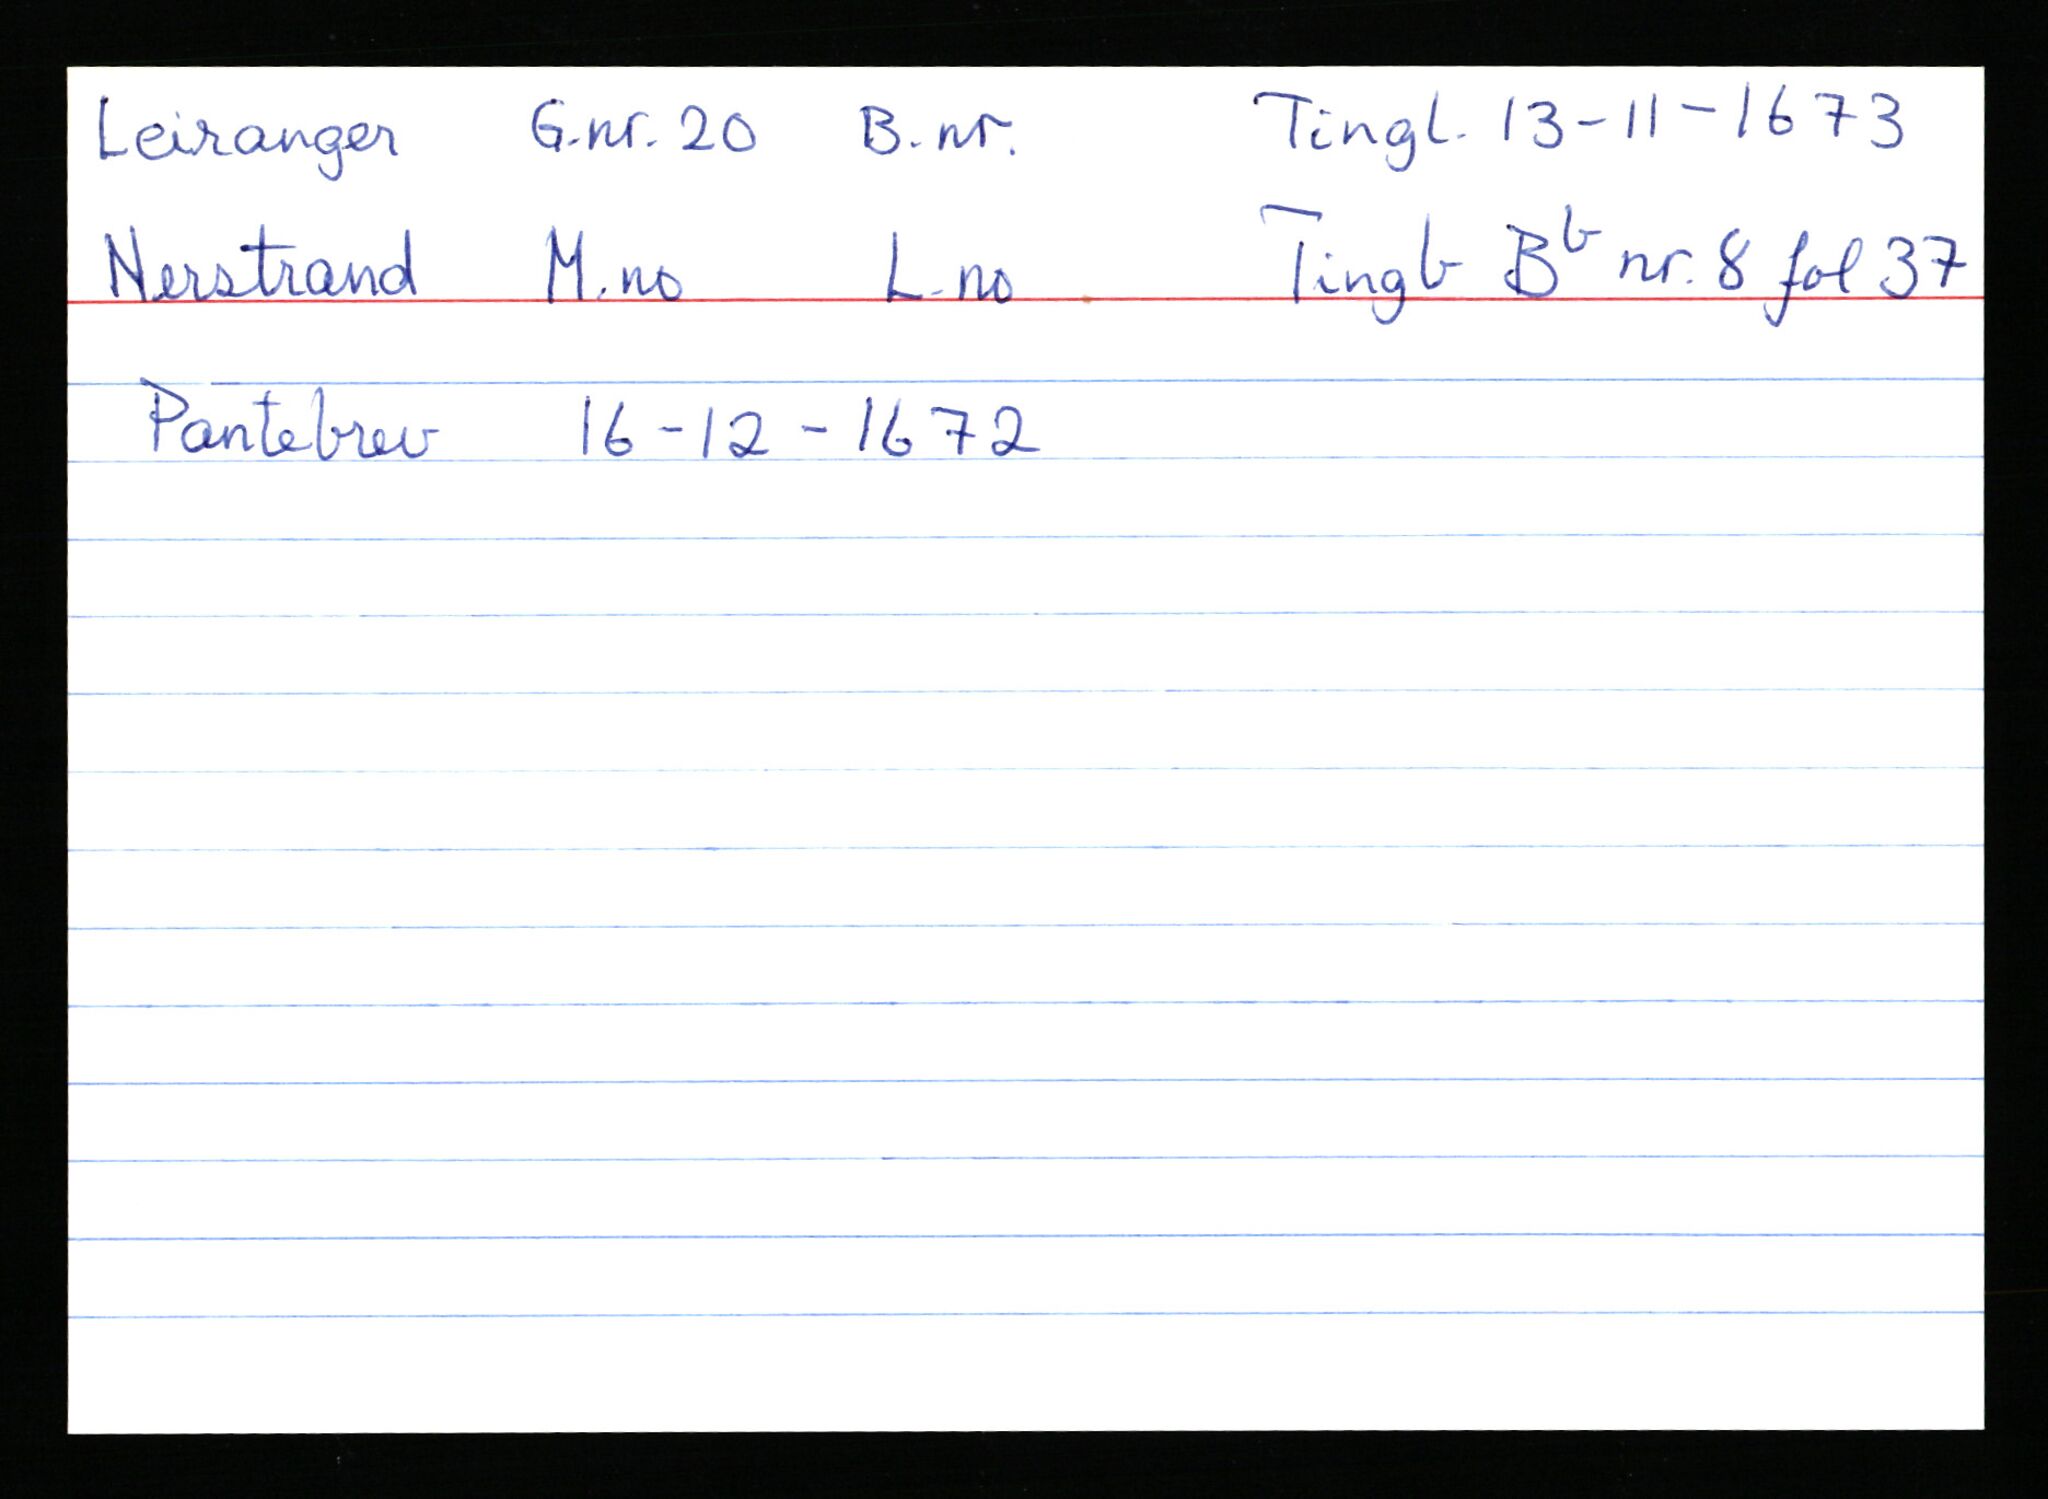 Leiranger G.nr. 20 B.nr. Tingl. 13-11-1673
Nerstrand M.no L.no Tingb Bb nr. 8 fol 37
Pantebrev 16-12-1672